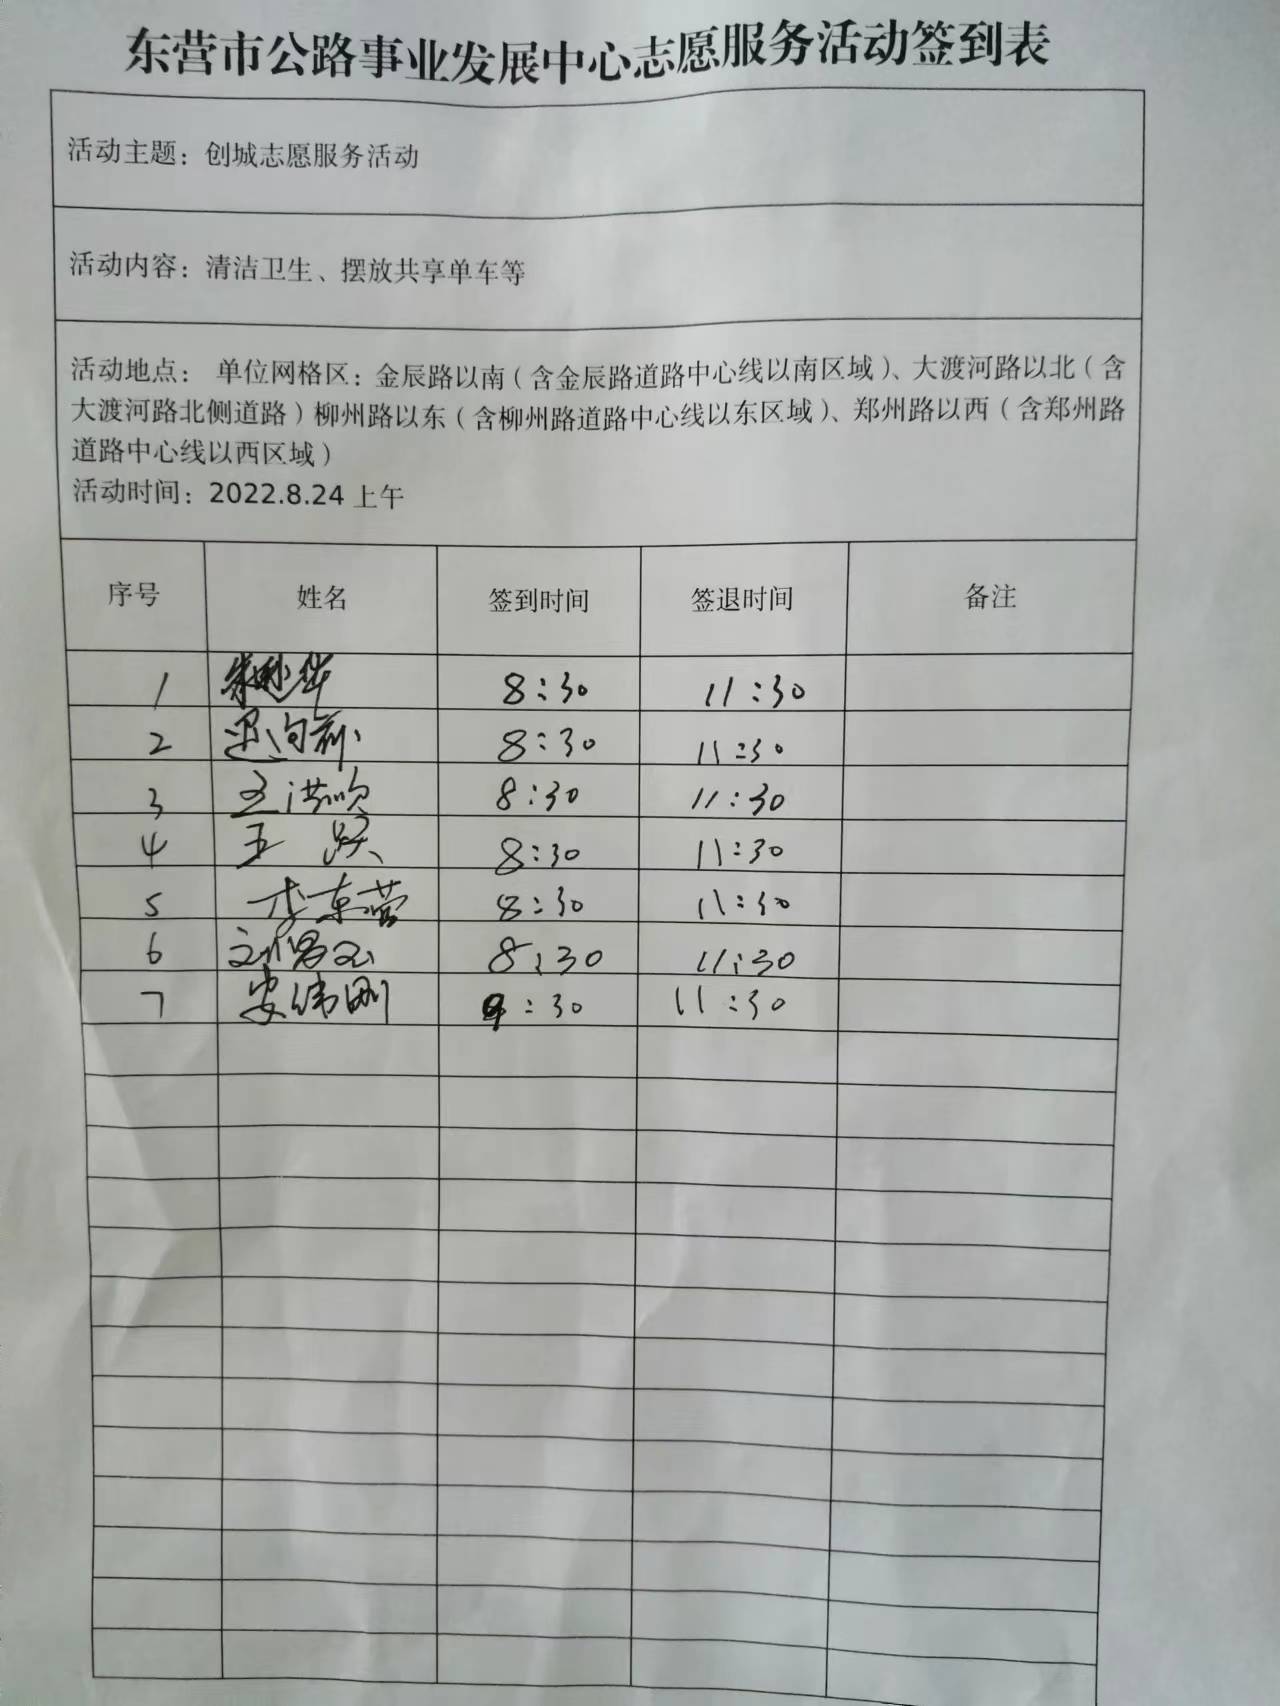 东营市公路事业发展中心志愿服务活动签到表
活动主题：创城志愿服务活动
活动内容：清洁卫生、摆放共享单车等
活动地点： 单位网格区：金辰路以南（含金辰路道路中心线以南区域）、大渡河路以北（含
大渡河路北侧道路）柳州路以东（含柳州路道路中心线以东区域）、郑州路以西（含郑州路
道路中心线以西区域）
活动时间：2022.8.24 上午
序号 姓名 签到时间 签退时间 备注
1 8:30 11:30
2 8:30 11:30
3 王洪顺 8:30 11:30
4 王 8:30 11:30
5 李东营 8:30 11:30
6 8:30 11:30
7 安伟刚 :30 11:30